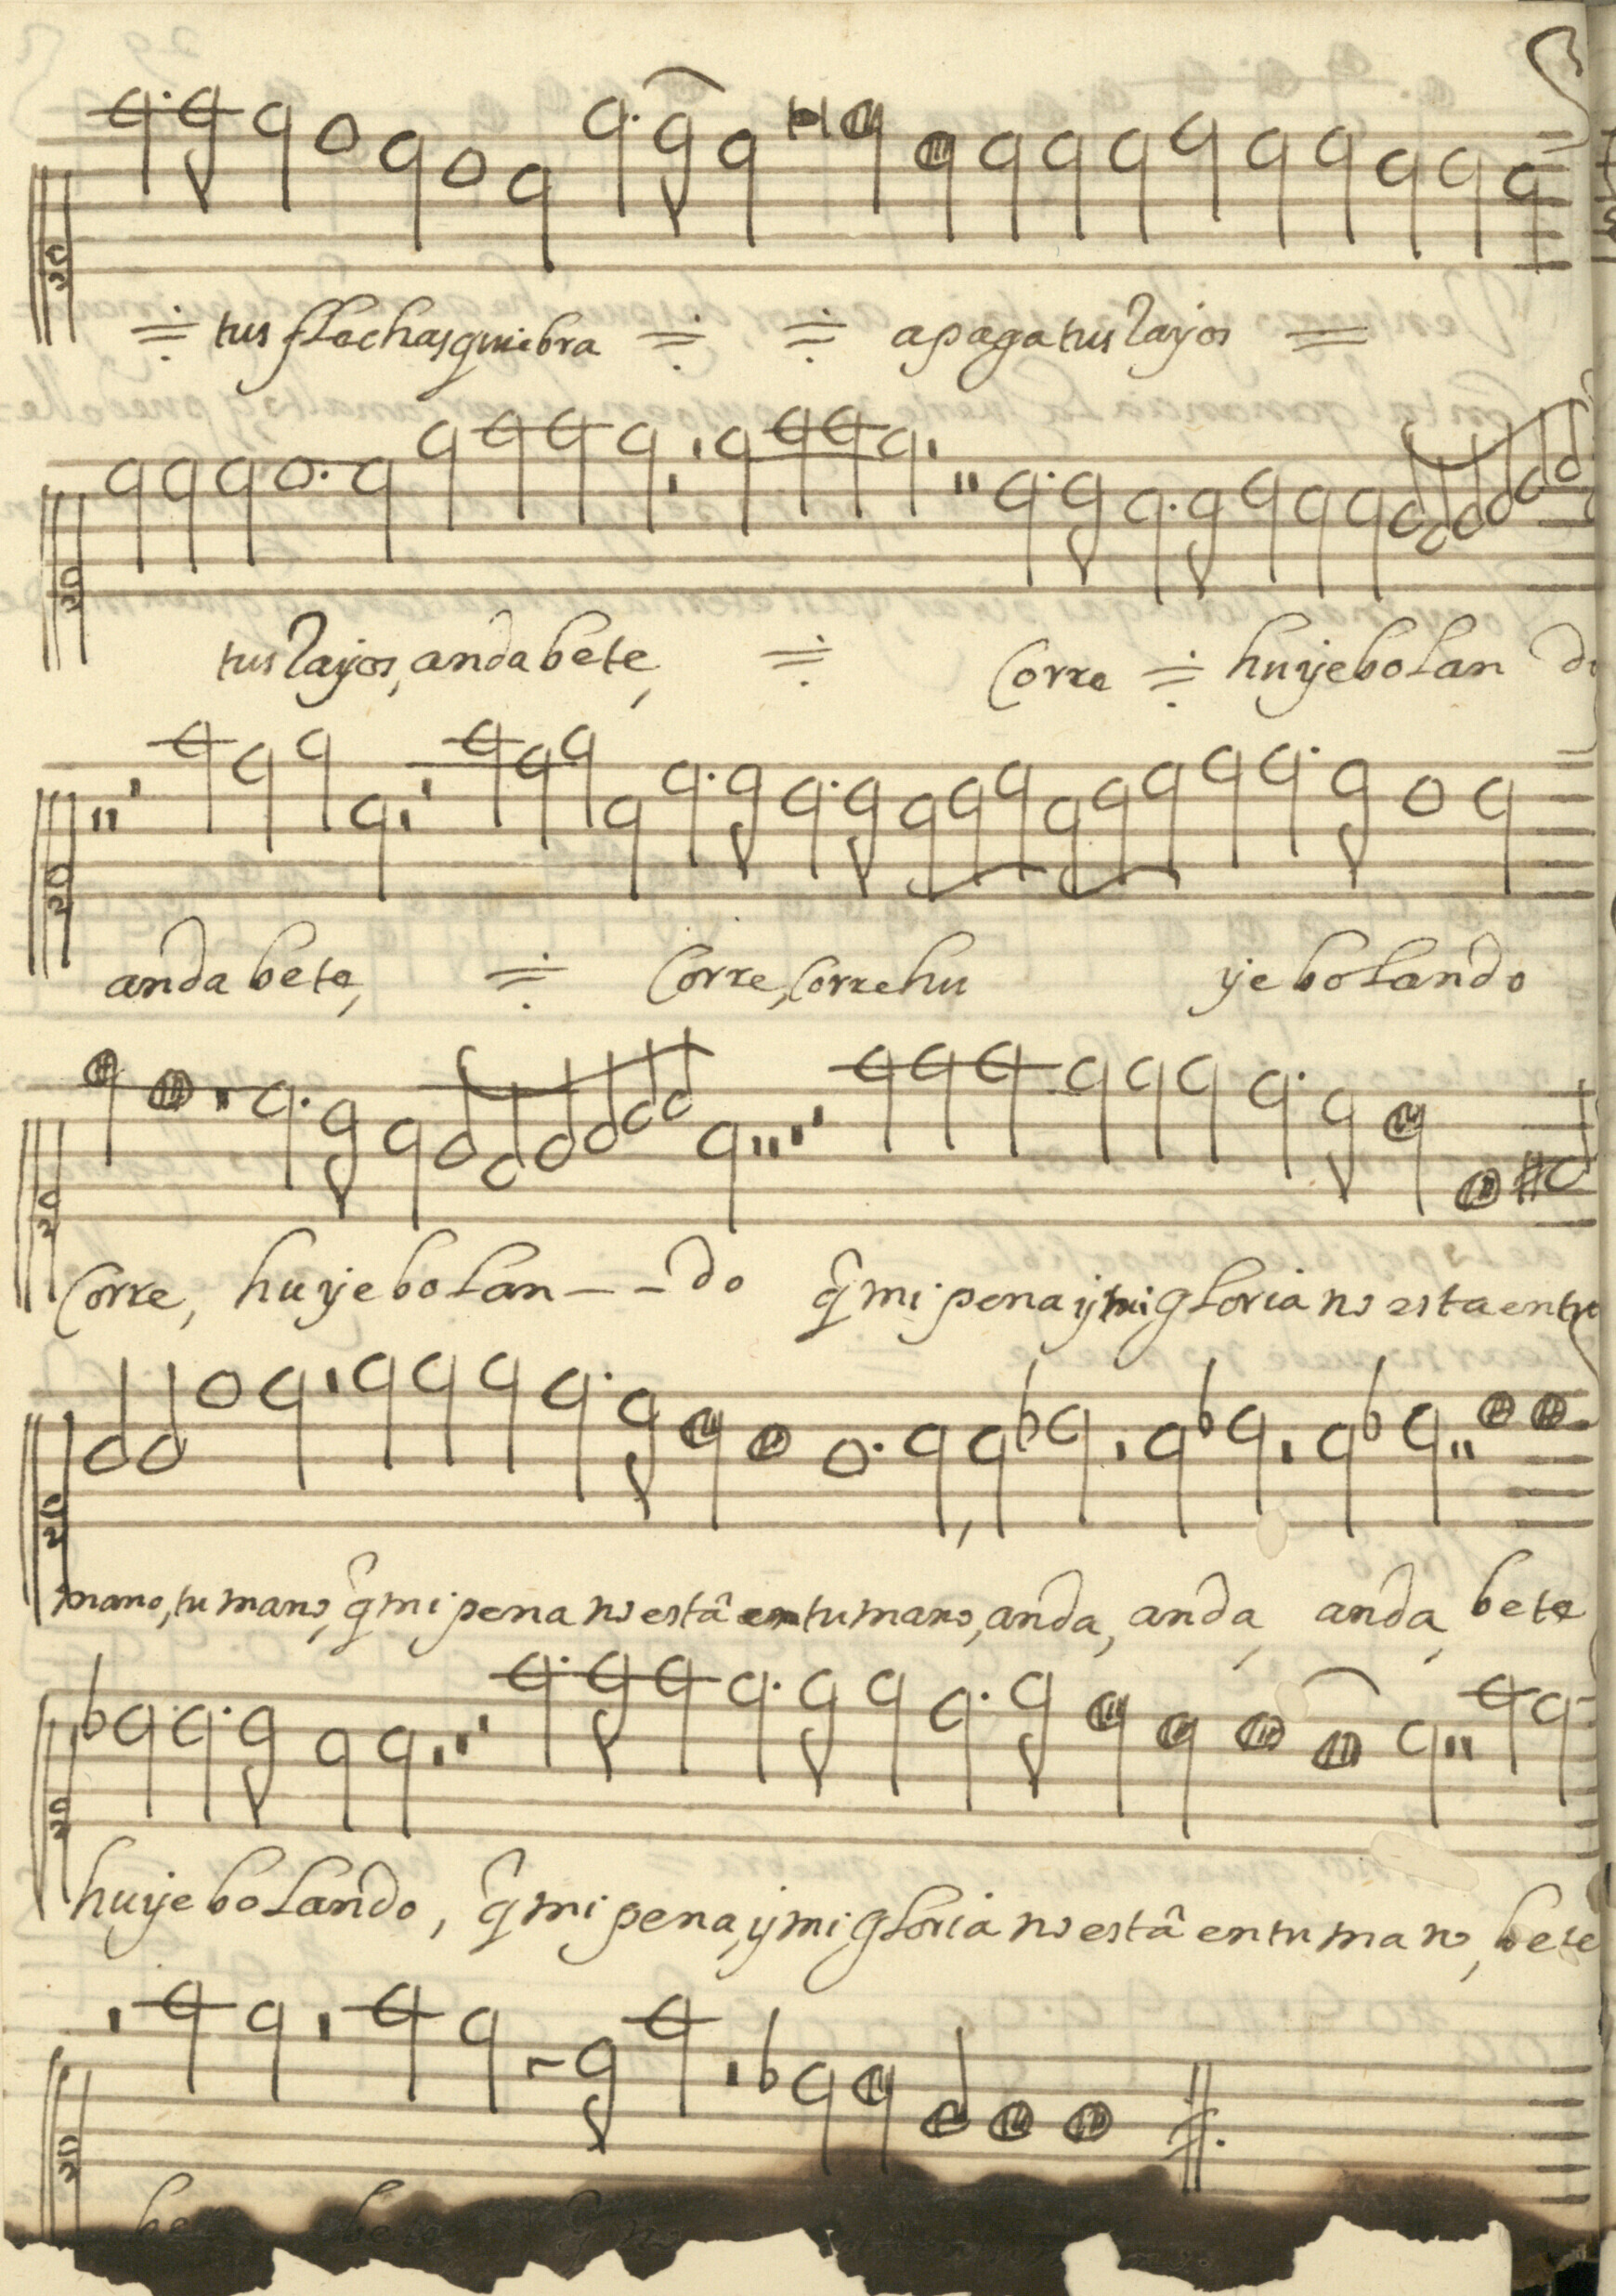 tus flechas quiebra apaga tus Rayos
tus Rayos, anda bete, Corre huye bolan do
anda bete, Corre, Corre hu ye bolando
Corre, huye bolan - - do q̂ mi pena y mi gloria no esta en tu
mano, tu mano, q̂ mi pena no estâ en tu mano, anda, anda, anda, bete
huye bolando, q̂ mi pena, y mi gloria no estâ en tu mano, bete
be bete